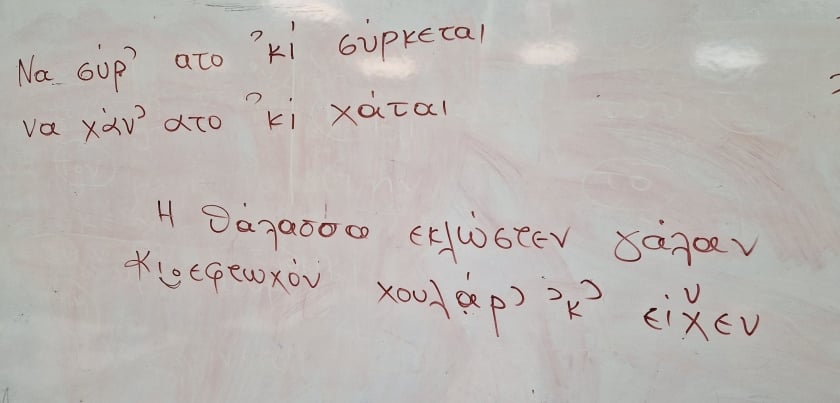 Να σύρ' ατο 'κί σύρκεται
να χάν' ατο 'κί χάται
Η θάλασσα εκλώστεν γάλαν
κι ο εφτωχόν χουλάρ' 'κ' είχ̌εν